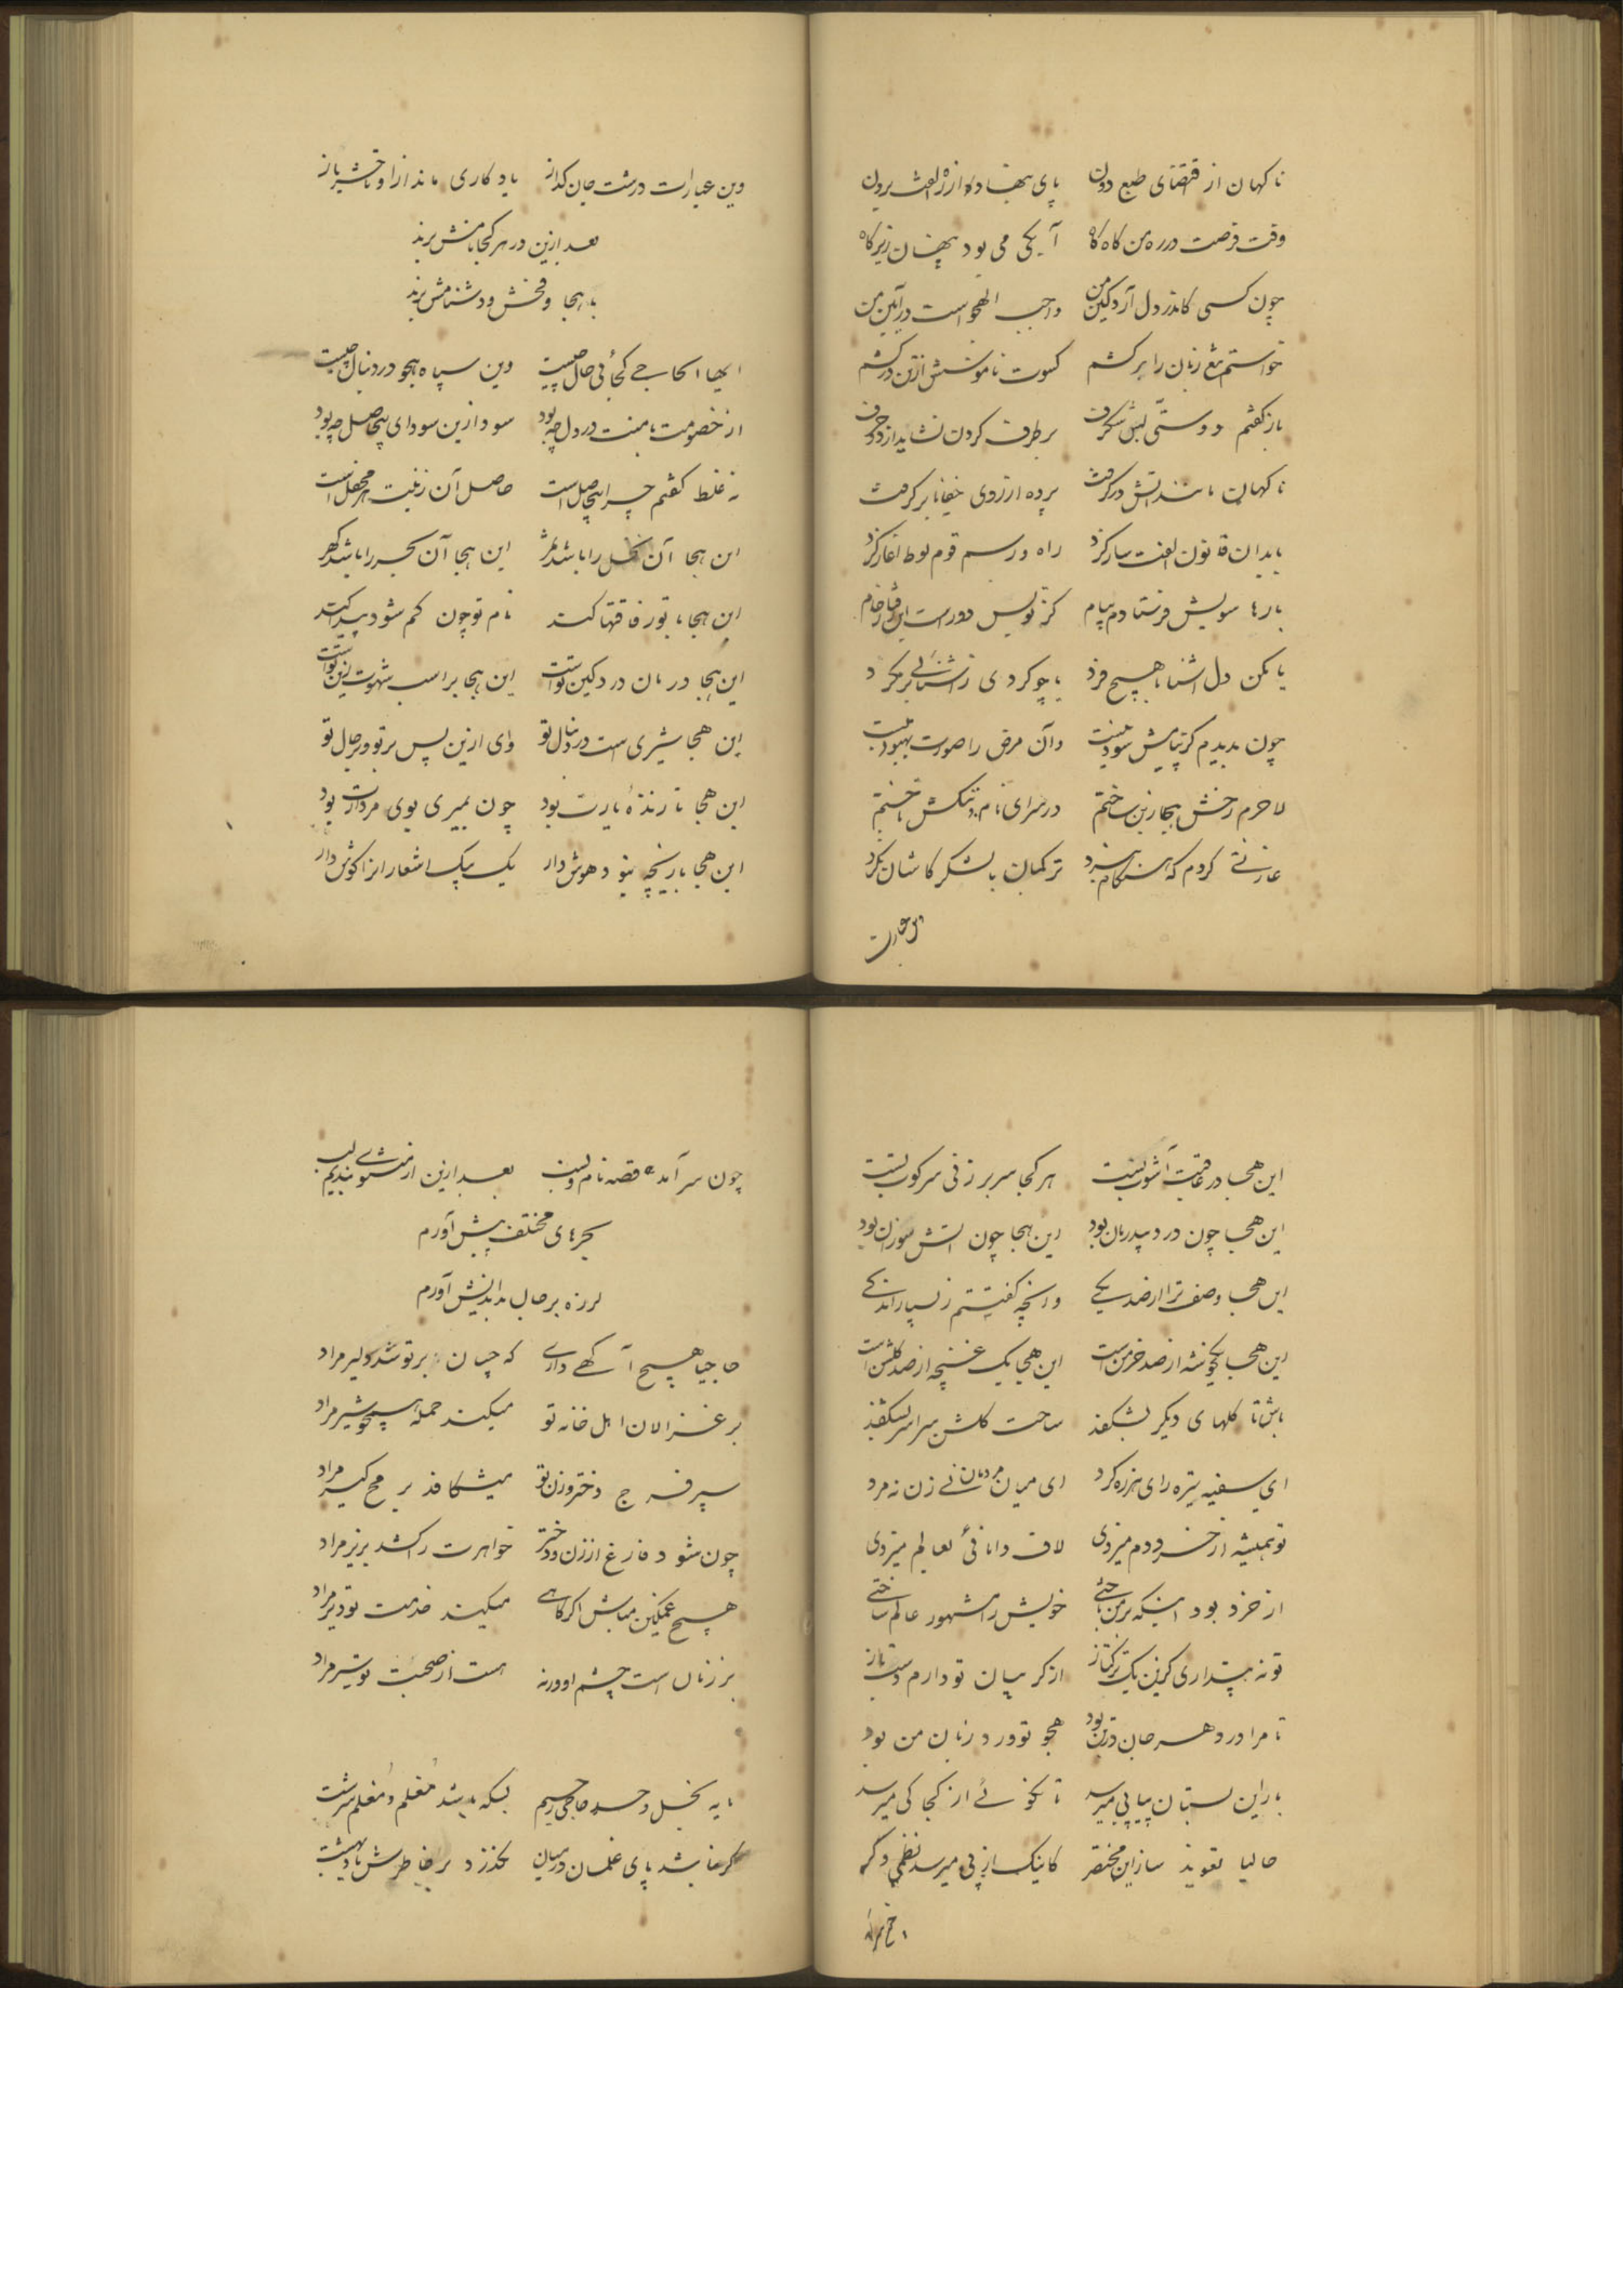 ناگهان از اقتضای طبع دون پای بنهاد از ره الفت برون
وقت فرصت در ره من گاه گاه آبکی می بود پنهان زیر کاه
چون کسی کاندر دل آرد کین من واجب الهجو است در آیین من
خواستم تیغ زبان را برکشم کسوت ناموسش از تن درکشم
باز گفتم دوستی بس شگرف برطرف کردن نشاید از دو حرف
ناگهان مانند آتش درگرفت پرده از روی خفا بر گرفت
با بدان قانون الفت ساز کرد راه و رسم قوم لوط آغاز کرد
بارها سویش فرستادم پیام کز تو بس دور است این
یا مکن دل آشنا با هیچ فرد یا چو کردی ز آشنائی برمگرد
چون بدیدم کز پیامش سود نیست وآن مرض را صورت بهبود نیست
لاجرم رخش هجا زین ساختم در سرای نام و ننگش تاختم
غارتی کردم که هنگام نبرد ترکمان با لشکر کاشان نکرد
وین عبارات
وین عبارات درشت جان گداز یادگاری ماند از او تا حشر باز
بعد ازین در هر کجا نامش برند
با هجا و فحش و دشنامش برند
ایها الحاجی کجائی حال چیست وین سپاه هجو در دنبال چیست
از خصومت با منت در دل چه بود سود ازین سودای بیحاصل چه بود
نه غلط گفتم چرا بیحاصل است حاصل آن زینت هر محفل است
این هجا آن نخل را باشد ثمر این هجا آن بحر را باشد گهر
این هجا با تو رفاقتها کند نام تو چون گم شود پیدا کند
این هجا درمان درد کین تو است این هجا بر اسب شهوت زین تو است
این هجا شیری است در دنبال تو وای ازین پس بر تو و بر حال تو
این هجا تا زنده یارت بود چون بمیری بوی مردارت بود
این هجا بازیچه نبود هوش دار یک بیک اشعار آنرا گوش دار
این هجا در عاقبت آشوب تست هر کجا سر بر زنی سرکوب تست
این هجا چون درد بیدرمان بود این هجا چون آتش سوزان بود
این هجا وصف ترا از صد یکی ورنچه گفتیتم ز بسیار اندکی
این هجا یک خوشه از صد خرمن است این هجا یک غنچه از صد گلشن است
باش تا گلهای دیگر بشکفد ساحت گلشن سراسر بشکفد
ای سفیه تیره رای هرزه گرد ای میان مردمان نی زن نه مرد
تو همیشه از خرد دم میزدی لاف دانائی بعالم میزدی
از خرد بود اینکه بر من تاختی خویش را مشهور عالم ساختی
تو نه پنداری کزین یک ترکتاز از گریبان تو دارم دست باز
تا مرا در دهر جان در تن بود هجو تو ورد زبان من بود
باز این بستان پیاپی میرسد تا نگوئی از کجا کی میرسد
حالیا تعویذ ساز این مختصر کاینک از پی میرسد نظمی دگر
چون سر آمد قصه نام و نسب بعد ازین از مثنوی بندیم لب
بحرهای مختلف پیش آورم
لرزه بر حال بداندیش آورم
حاجیا هیچ آگهی داری که چسان بر تو شد دلیر مراد
بر غزالان اهل خانه تو میکند حمله همچو شیر مراد
سپر فرج دختر و زن تو میشکافد بر مح کیر مراد
چون شود فارغ از زن و دختر خواهرت را کشد بزیر مراد
هیچ غمگین مباش اگر گاهی میکند خدمت تو دیر مراد
بر زنان است چشم او ورنه هست از صحبت تو سیر مراد
مایه بخل و حسد حاجی رحیم بسکه باشد مغلم و مغلم سرشت
گر نباشد پای غلمان در میان نگذرد بر خاطرش یاد بهشت